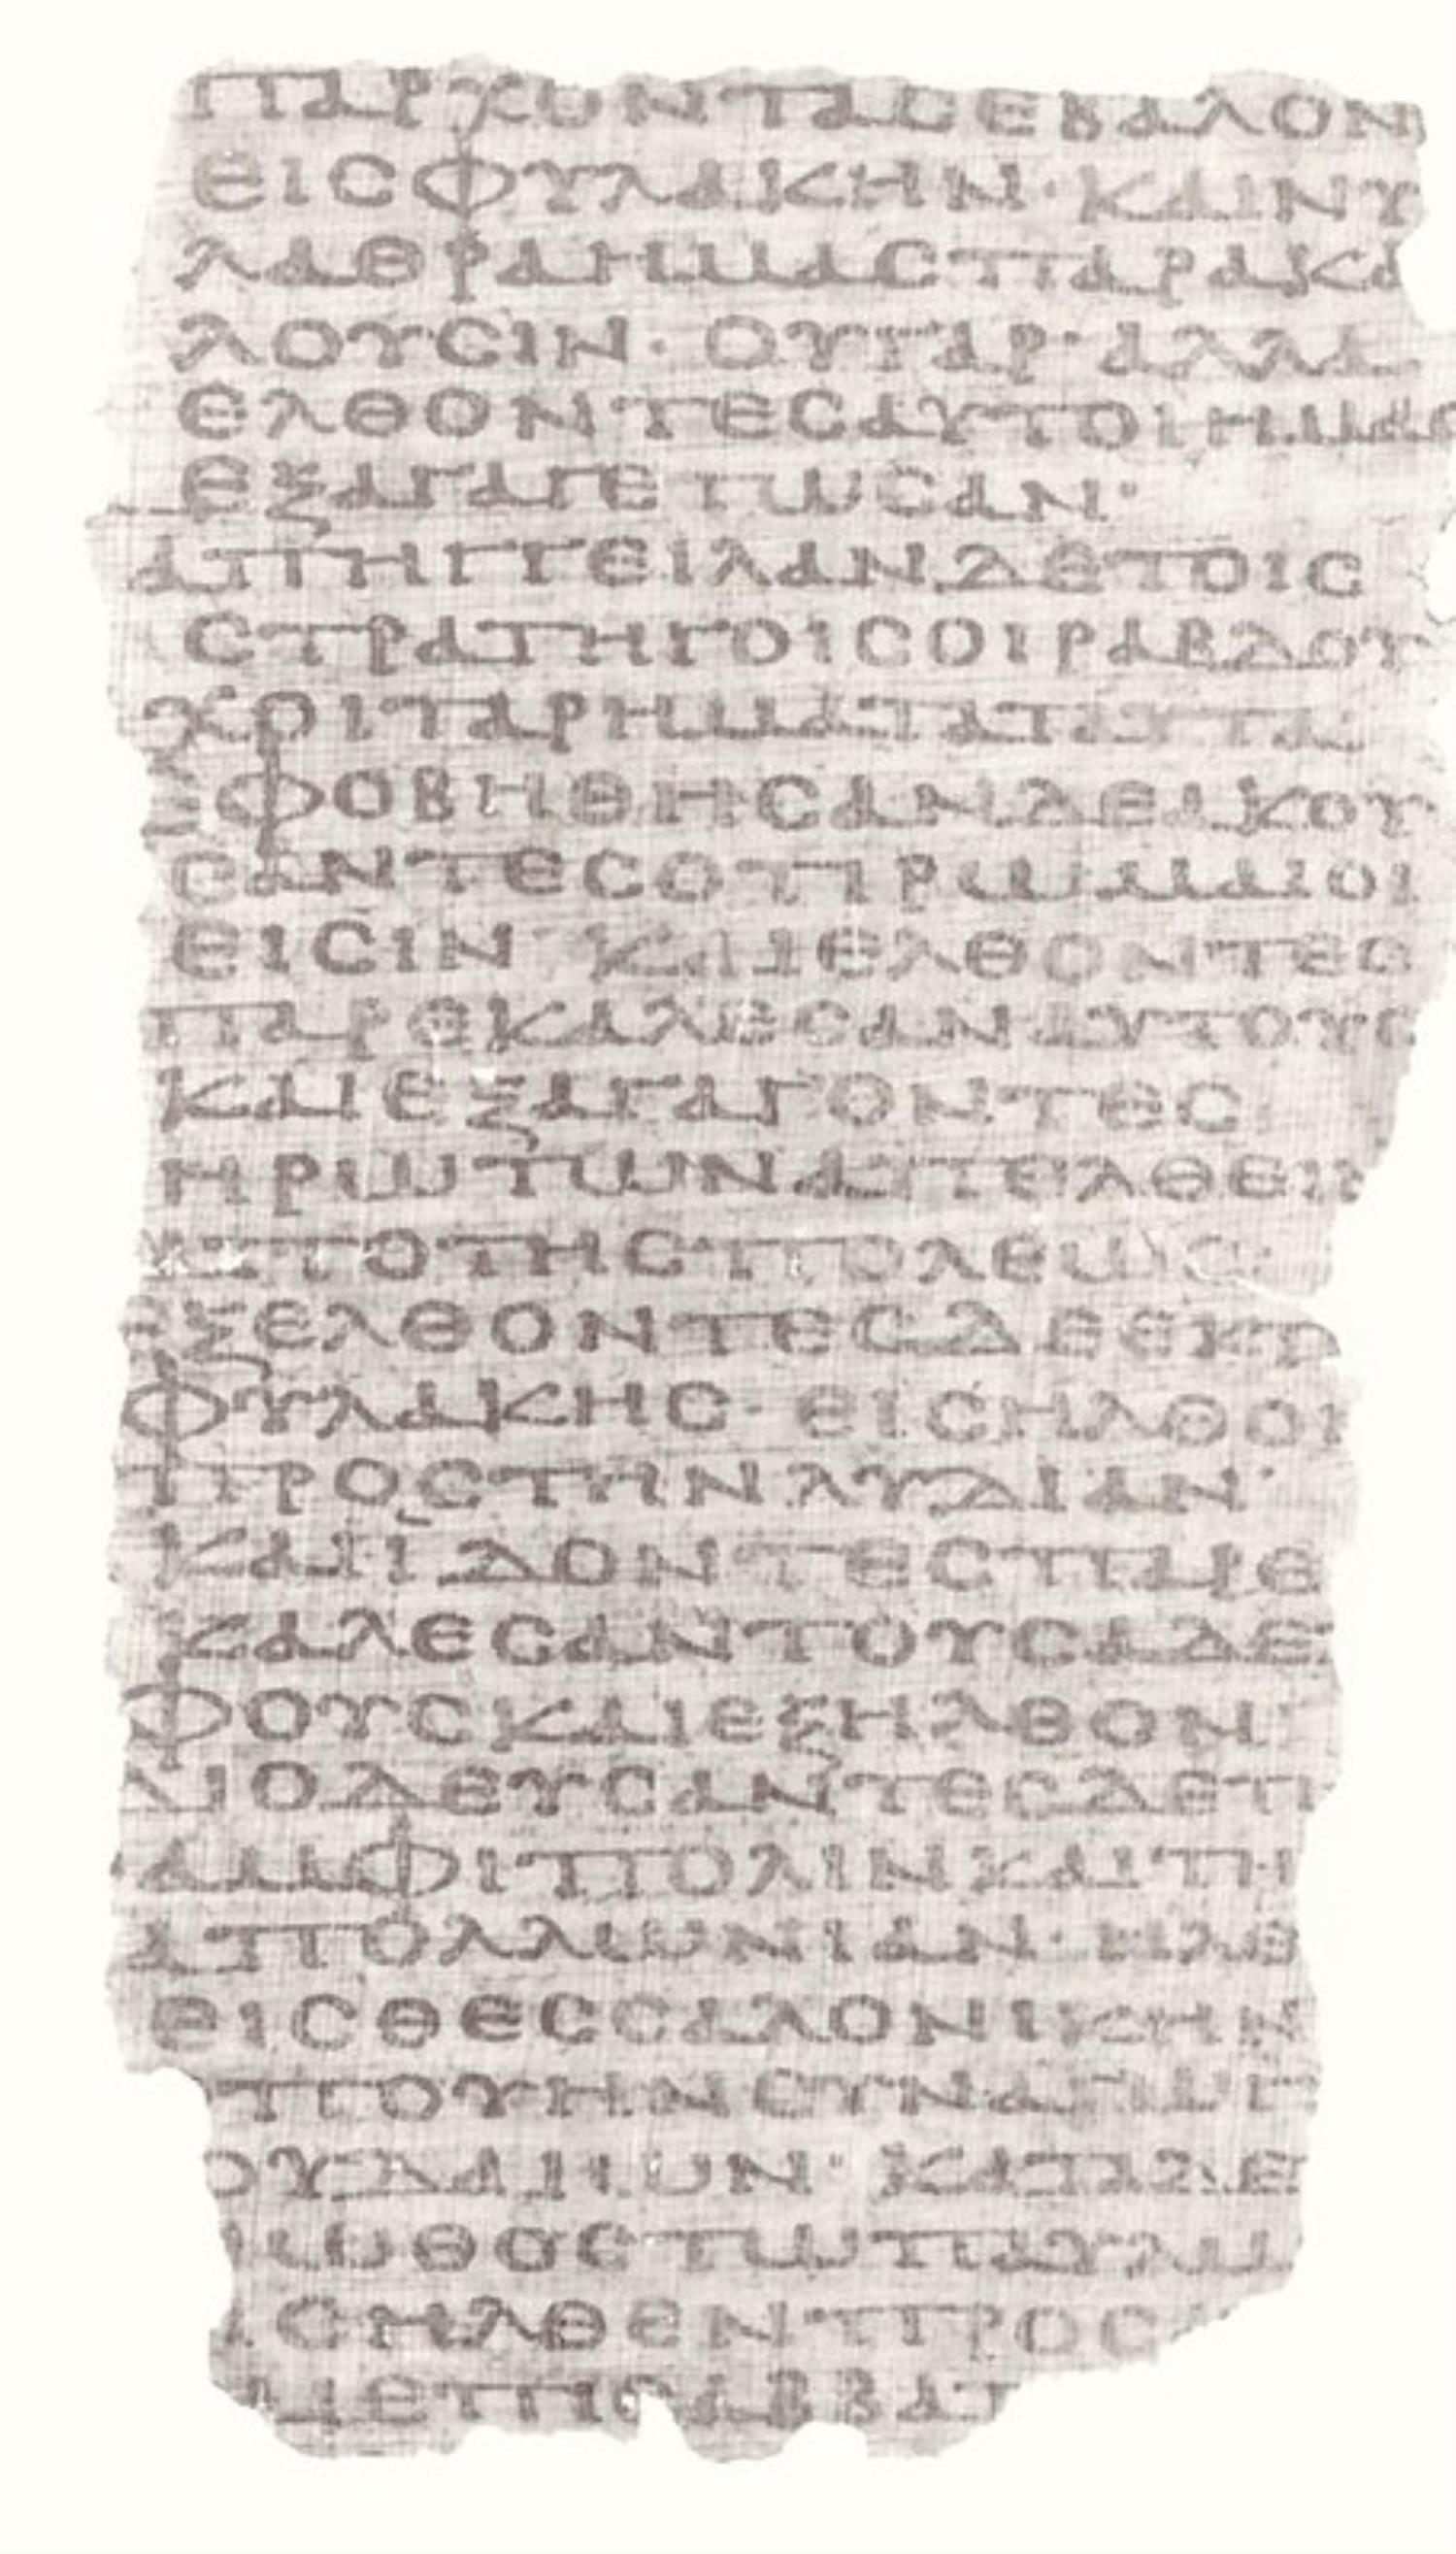 ΠΑΡΧΟΝΤΑϹΕΒΑΛΟΝ
ΕΙϹΦΥΛΑΚΗΝ· ΚΑΙΝΥ
ΛΑΘΡΑΗΜΑϹΠΑΡΑΚΑ
ΛΟΥϹΙΝ· ΟΥΓΑΡ· ΑΛΛΑ
ΕΛΘΟΝΤΕϹΑΥΤΟΙΗΜΑϹ
ΕΞΑΓΑΓΕΤωϹΑΝ·
ΑΠΗΓΓΕΙΛΑΝΔΕΤΟΙϹ
ϹΤΡΑΤΗΓΟΙϹΟΙΡΑΒΔΟΥ
ΧΟΙΤΑΡΗΜΑΤΑΤΑΥΤΑ
ΕΦΟΒΗΘΗϹΑΝΔΕΑΚΟΥ
ϹΑΝΤΕϹΟΤΙΡωΜΑΙΟΙ
ΕΙϹΙΝ ΚΑΙΕΛΘΟΝΤΕϹ
ΠΑΡΕΚΑΛΕϹΑΝΑΥΤΟΥϹ
ΚΑΙΕΞΑΓΑΓΟΝΤΕϹ
ΗΡωΤωΝΑΠΕΛΘΕΙΝ
ΑΠΟΤΗϹΠΟΛΕωϹ·
ΕΞΕΛΘΟΝΤΕϹΔΕΕΚΤ
ΦΥΛΑΚΗϹ· ΕΙϹΗΛΘΟΝ
ΠΡΟϹΤΗΝΛΥΔΙΑΝ·
ΚΑΙΪΔΟΝΤΕϹΠΑΡΕ
ΚΑΛΕϹΑΝΤΟΥϹΑΔΕ
ΦΟΥϹΚΑΙΕΞΗΛΘΟΝ·
ΔΙΟΔΕΥϹΑΝΤΕϹΔΕΤΗ
ΑΜΦΙΠΟΛΙΝΚΑΙΤΗ
ΑΠΟΛΛωΝΙΑΝ· ΗΛΘ
ΕΙϹΘΕϹϹΑΛΟΝΙΚΗΝ
ΠΟΥΗΝϹΥΝΑΓωΓ
ΟΥΔΑΙωΝ· ΚΑΤΑΔΕ
ΙωΘΟϹΤωΠΑΥΛω
ϹΗΛΘΕΝΠΡΟϹ
ΑΙΕΠΙϹΑΒΒΑΤ